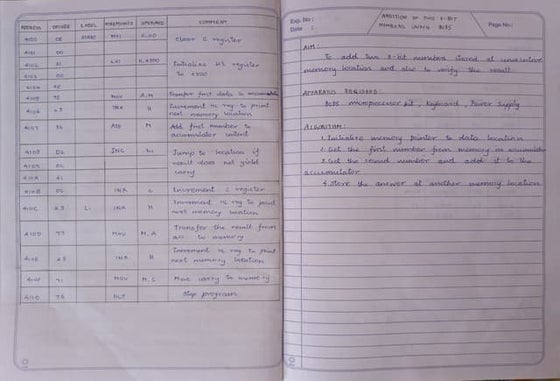 ADDRESS OPCODE LABEL MNEMONICS OPERAND COMMENT
4100 0E START MVI C,00 Clear C register
4101 00
4102 21 LXI H,4500 Initialize HL register
4103 00 to 4500
4104 45
4105 7E MOV A,M Transfer first data to accumulator
4106 23 INX H Increment HL reg to point
next memory location
4107 86 ADD M Add first number to
accumulator content
4108 D2 JNC L1 Jump to location if
4109 0C result does not yield
410A 41 carry
410B 0C INR C Increment C register
410C 23 L1 INX H Increment HL reg to point
next memory location
410D 77 MOV M,A Transfer the result from
acc to memory
410E 23 INX H Increment HL reg to point
next memory location
410F 71 MOV M,C Move carry to memory
4110 76 HLT Stop program
Exp. No :
Date :
ADDITION OF TWO 8-BIT
NUMBERS USING 8085
Page No :
AIM :
To add two 8-bit numbers stored at consecutive
memory location and also to verify the result.
APPARATUS REQUIRED :
8085 microprocessor kit, Keyboard, Power Supply
ALGORITHM :
1. Initialize memory pointer to data location
2. Get the first number from memory in accumulator
3. Get the second number and add it to the
accumulator
4. Store the answer at another memory location